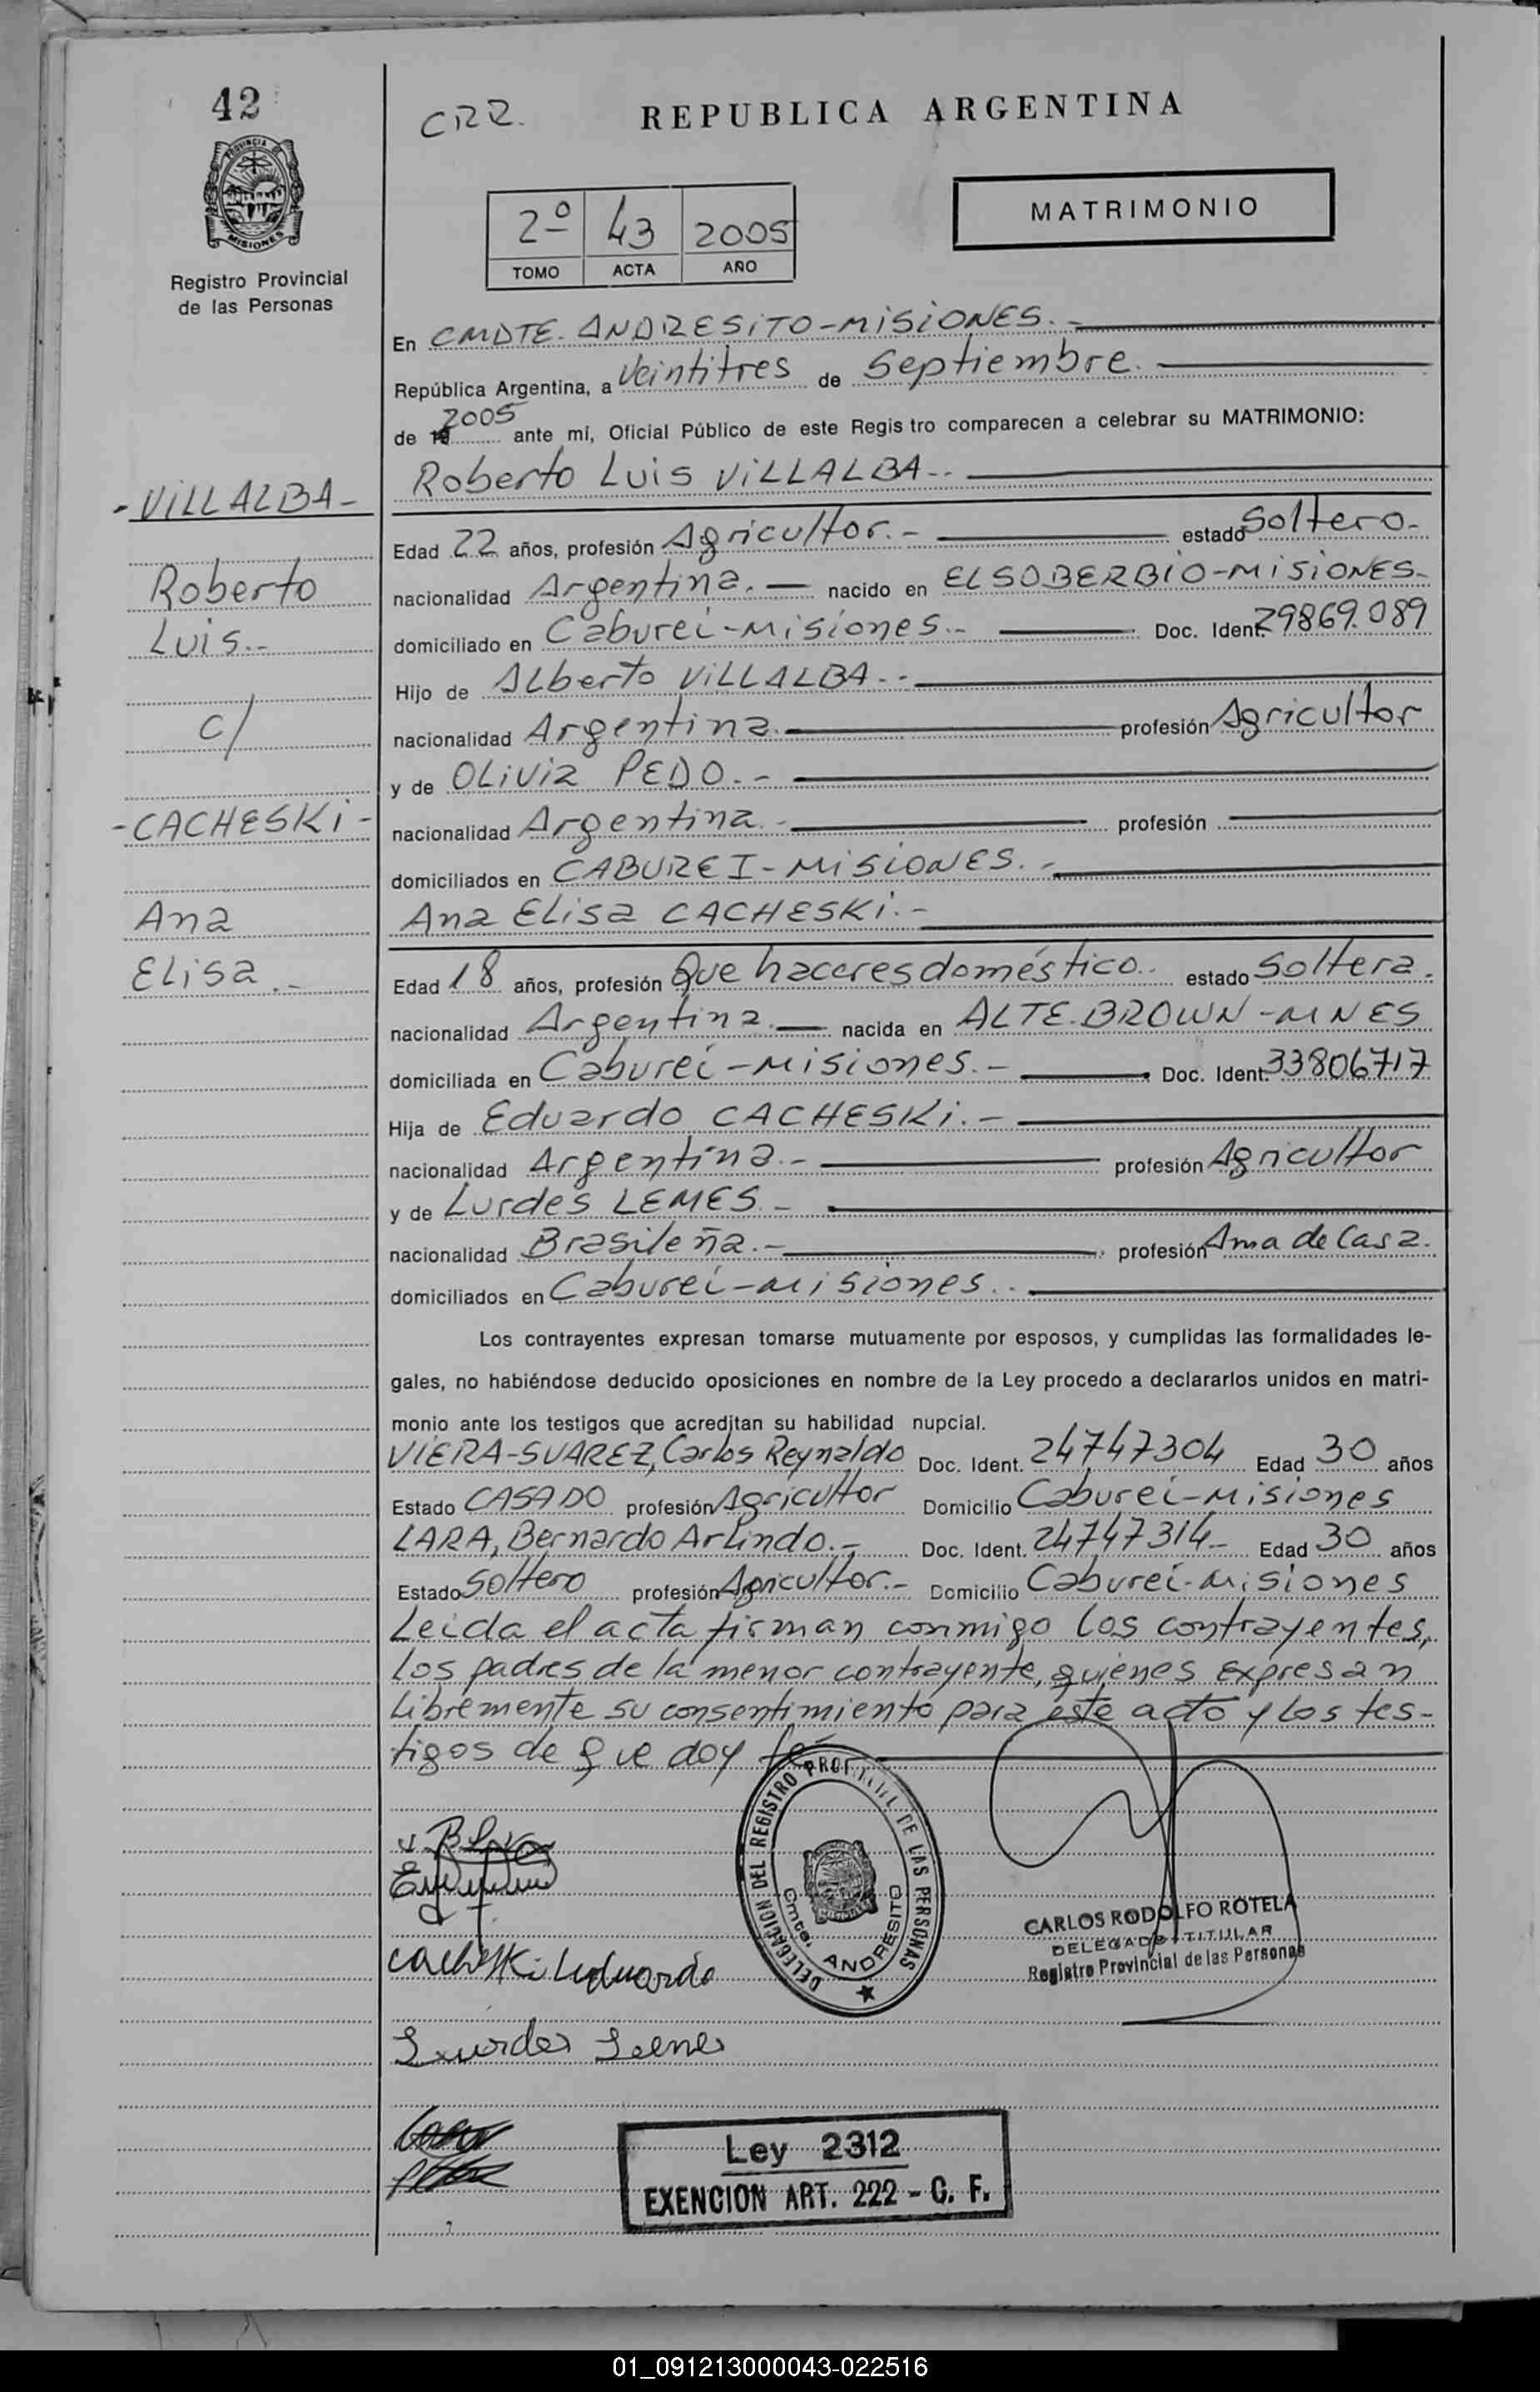 42
CRR.
REPUBLICA ARGENTINA
PROVINCIA DE
MISIONES
Registro Provincial
de las Personas
2º 43 2005
TOMO ACTA AÑO
MATRIMONIO
En CMDTE. ANDRESiTO-MiSiONES.-
República Argentina, a Veintitres de Septiembre.
de 19 2005 ante mí, Oficial Público de este Regis tro comparecen a celebrar su MATRIMONIO:
Roberto Luis ViLLALBA.-
-ViLLALBA-
Edad 22 años, profesión Agricultor.- estado Soltero.-
Roberto
nacionalidad Argentina.- nacido en EL SOBERBiO-MiSiONES-
Luis.-
domiciliado en Caburei-Misiones.- Doc. Ident. 29869.089
Hijo de Alberto ViLLALBA.-
c/
nacionalidad Argentina. profesión Agricultor
y de OLiVia PEDO.-
-CACHESKi-
nacionalidad Argentina.- profesión
domiciliados en CABUREI-MiSiONES.-
Ana
Ana Elisa CACHESKi.-
Elisa.-
Edad 18 años, profesión Que haceres doméstico.. estado Soltera.
nacionalidad Argentina.- nacida en ALTE.BROWN-MNES
domiciliada en Caburei-Misiones.- Doc. Ident. 33806717
Hija de Eduardo CACHESKi.-
nacionalidad Argentina.- profesión Agricultor
y de Lurdes LEMES.-
nacionalidad Brasileña.- profesión Ama de Casa.
domiciliados en Caburei-Misiones..
Los contrayentes expresan tomarse mutuamente por esposos, y cumplidas las formalidades le-
gales, no habiéndose deducido oposiciones en nombre de la Ley procedo a declararlos unidos en matri-
monio ante los testigos que acreditan su habilidad nupcial.
ViERA-SUAREZ, Carlos Reynaldo Doc. Ident. 24747304 Edad 30 años
Estado CASADO profesión Agricultor Domicilio Caburei-Misiones
LARA, Bernardo Arlindo.- Doc. Ident. 24747314- Edad 30 años
Estado Soltero profesión Agricultor.- Domicilio Caburei-Misiones
Leida el acta firman conmigo los contrayentes,
los padres de la menor contrayente, quienes expresan
libremente su consentimiento para éste acto y los tes-
tigos de que doy fé
DELEGACION DEL REGISTRO PROVINCIAL DE LAS PERSONAS
Cmte. ANDRESITO
CARLOS RODOLFO ROTELA
DELEGADO TITULAR
Registro Provincial de las Personas
Cacheski Eduardo
Lurdes Lemes
Ley 2312
EXENCION ART. 222 - C. F.
01_091213000043-022516